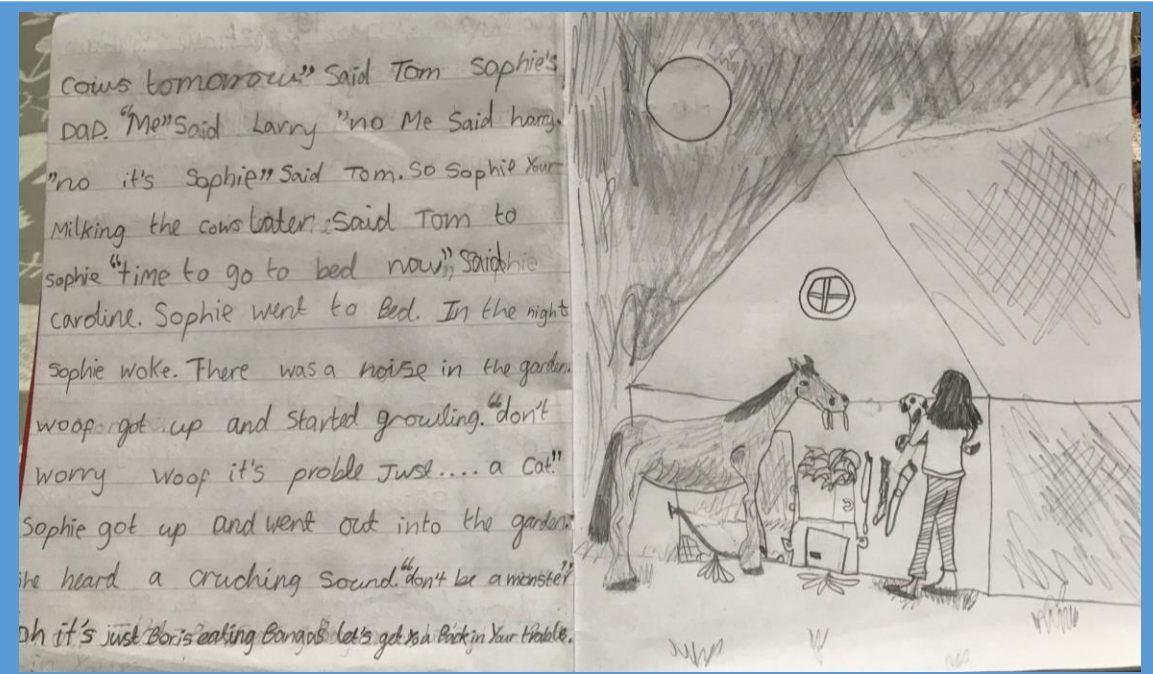 cows tomorrow" Said Tom Sophie's
DaD. "Me" Said Larry "no Me Said harry.
"no it's Sophie" Said Tom. So Sophie Your
Milking the cows later said Tom to
sophie "time to go to bed now", Said
caroline. Sophie went to Bed. In the night
Sophie woke. There was a noise in the garden.
woof got up and started growling. "don't
worry woof it's proble Just.... a cat."
Sophie got up and went out into the garden.
he heard a cruching sound. "don't be a monster"
oh it's just Boris eating Bangos let's get You Back in Your